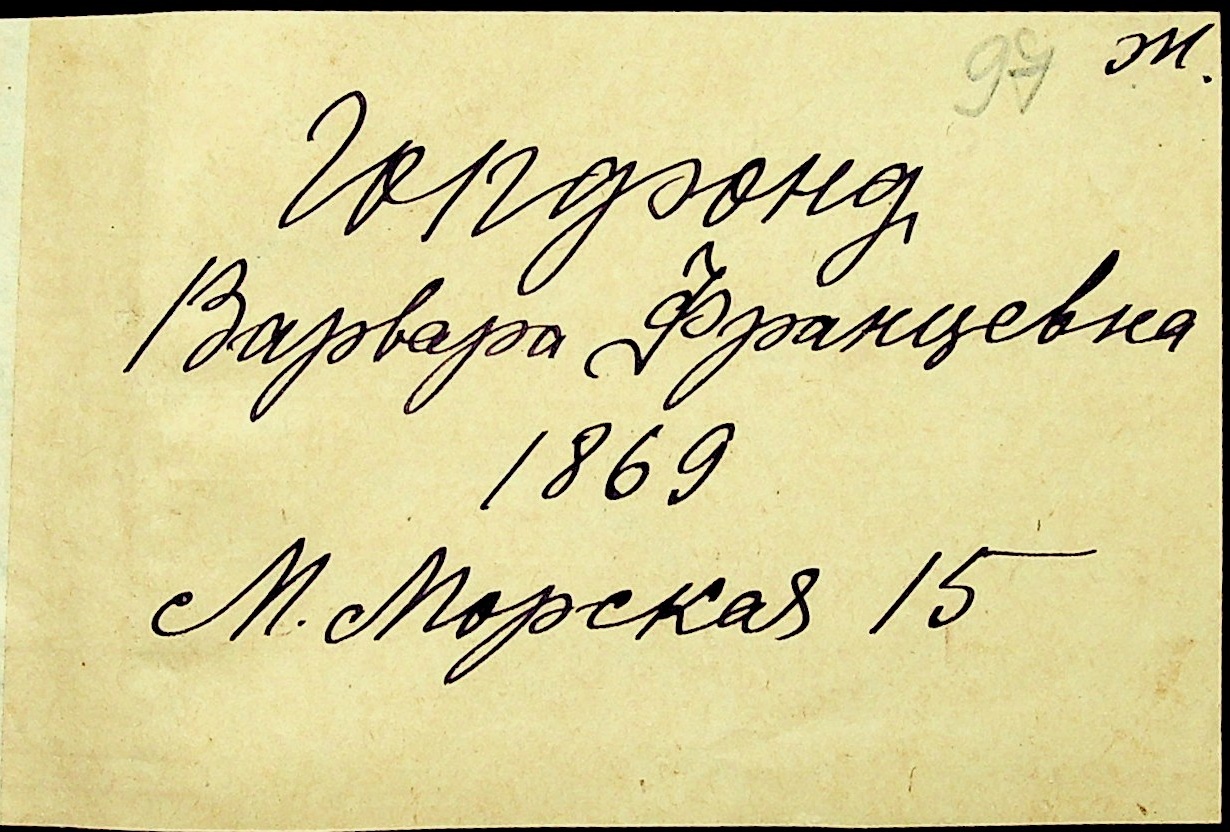 97 ж.
Варвара Францевна
1869
М. Морская 15